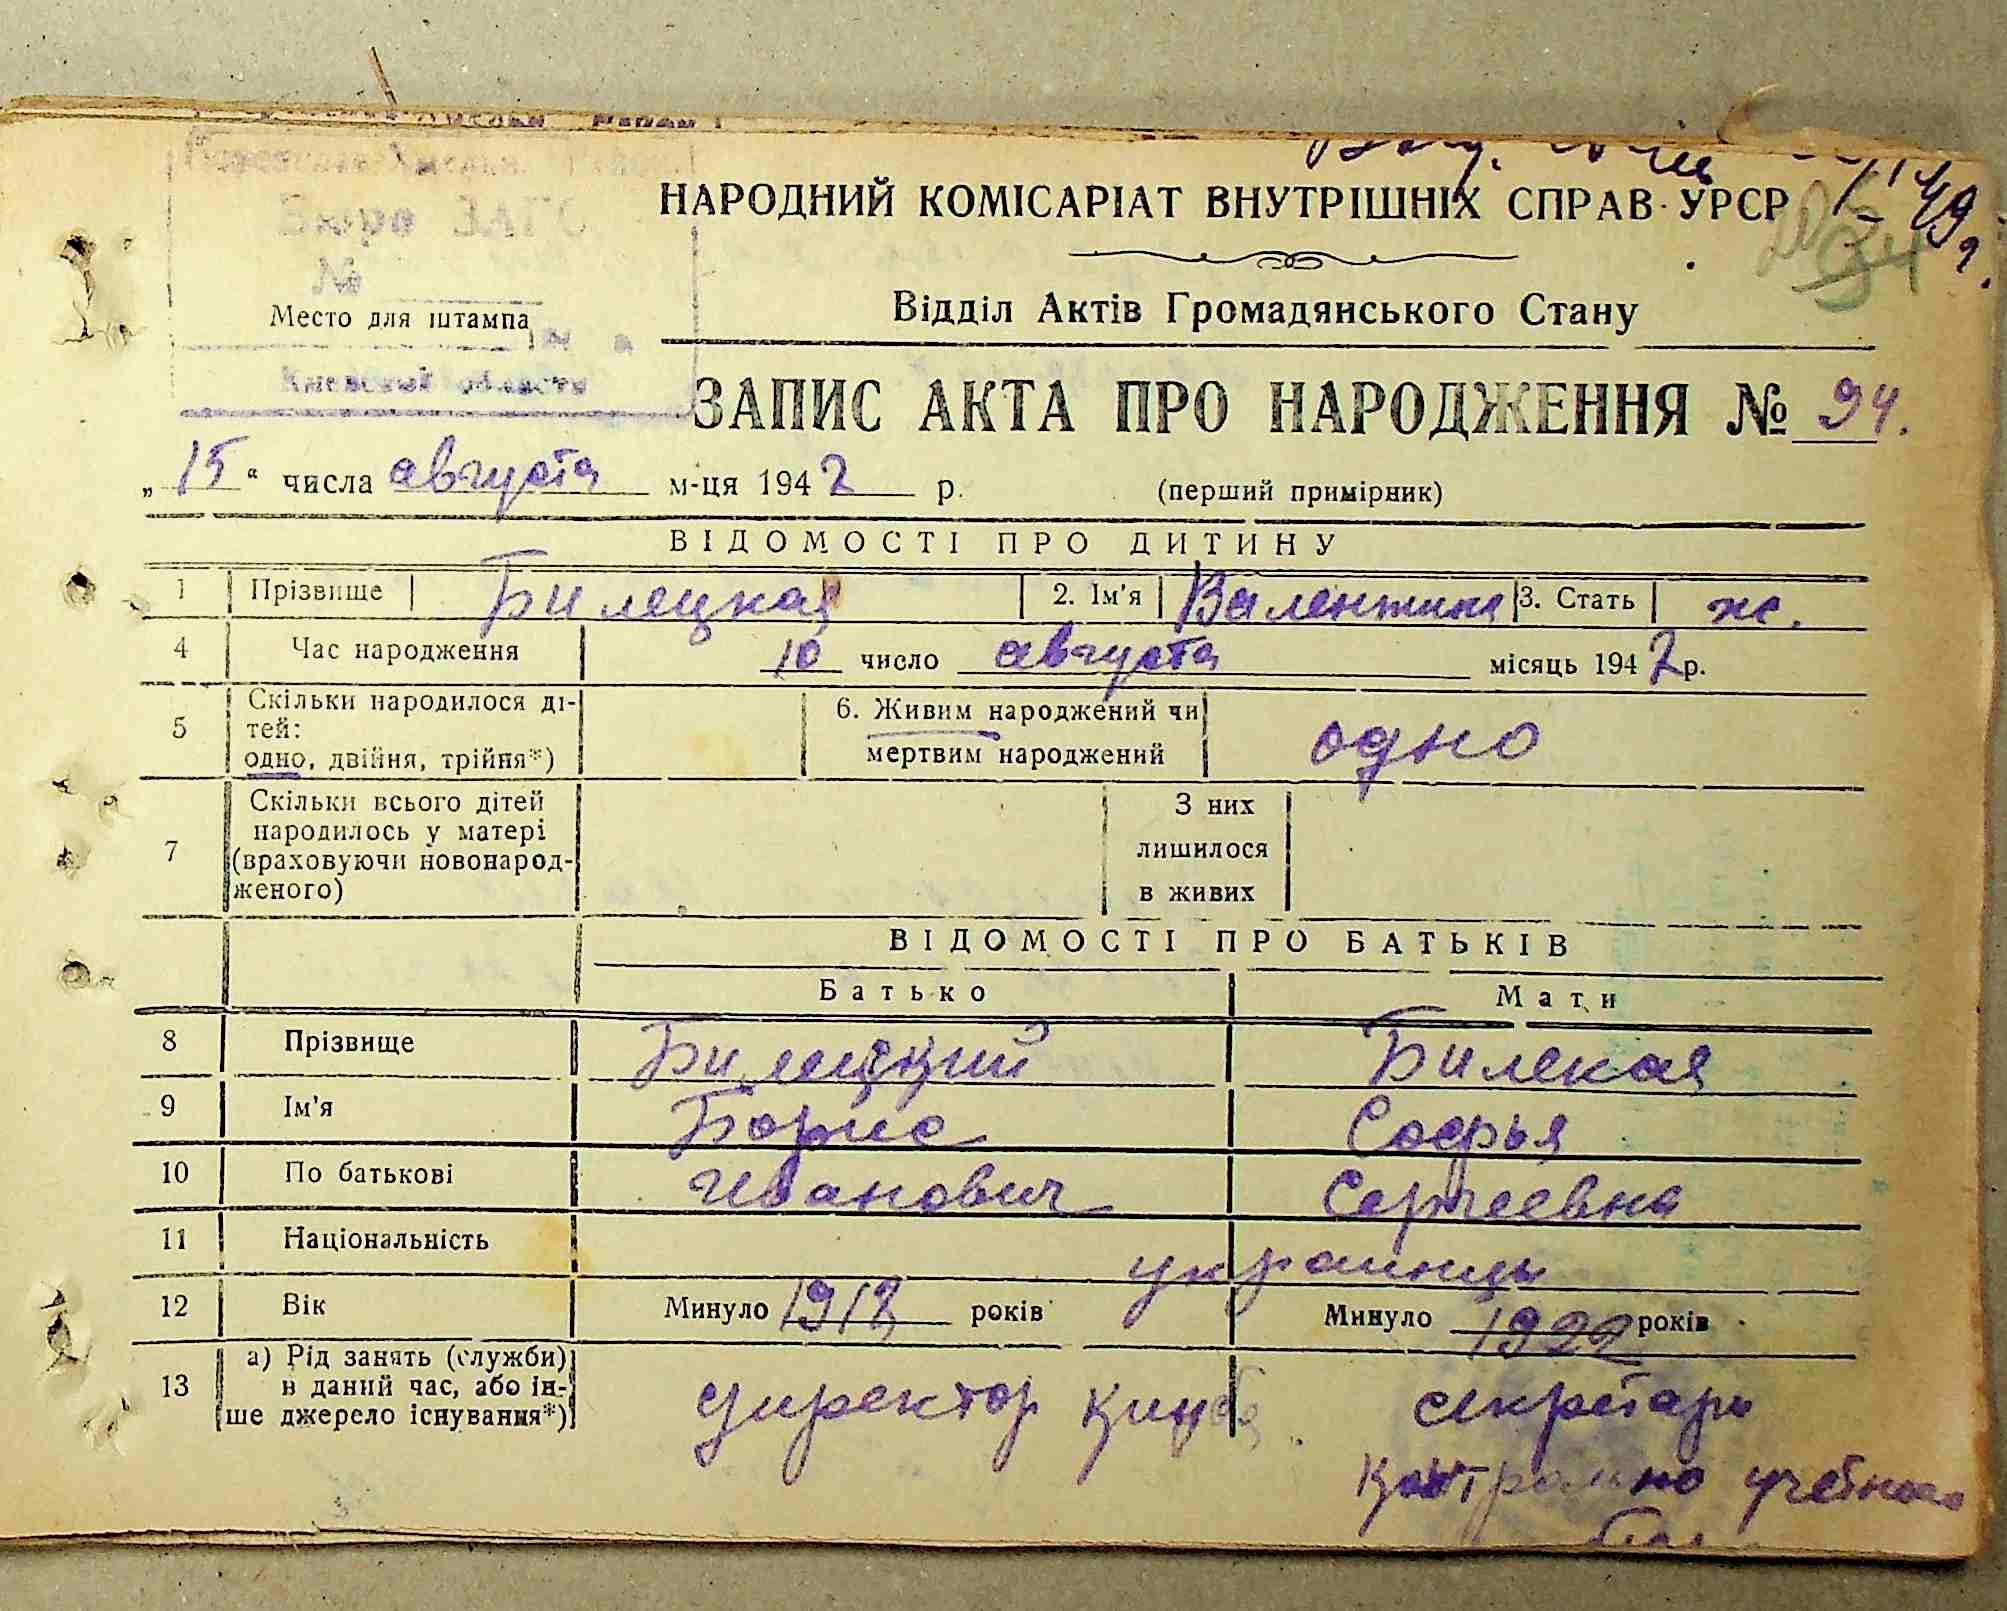 Бюро ЗАГС
№
Место для штампа
Киевской области
НАРОДНИЙ КОМІСАРІАТ ВНУТРІШНІХ СПРАВ УРСР
49 г.
94
Відділ Актів Громадянського Стану
ЗАПИС АКТА ПРО НАРОДЖЕННЯ № 94.
„15“ числа августа м-ця 1942 р. (перший примірник)
ВІДОМОСТІ ПРО ДИТИНУ
1 Прізвище Билецкая 2. Ім'я Валентина 3. Стать ж.
4 Час народження 10 число августа місяць 1942 р.
5 Скільки народилося ді-
тей:
одно, двійня, трійня*)
6. Живим народжений чи
мертвим народжений
одно
7 Скільки всього дітей
народилось у матері
(враховуючи новонарод-
женого)
З них
лишилося
в живих
ВІДОМОСТІ ПРО БАТЬКІВ
Батько Мати
8 Прізвище Билецкий Билекая
9 Ім'я Борис Софья
10 По батькові Иванович Сергеевна
11 Національність украинцы
12 Вік Минуло 1918 років Минуло 1922 років
13 а) Рід занять (служби)
в даний час, або ін-
ше джерело існування*)
директор секретарь
контрольно учебного